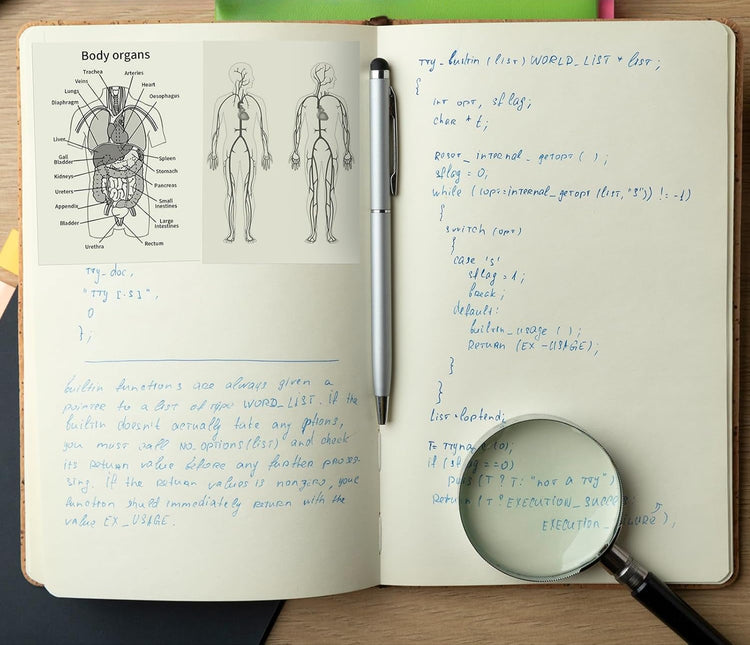 Body organs
Trachea
Arteries
Veins
Heart
Lungs
Oesophagus
Diaphragm
Liver
Gall
Bladder
Spleen
Stomach
Kidneys
Pancreas
Ureters
Small
Inestines
Appendix
Large
Intestines
Bladder
Urethra
Rectum
tty_doc,
"tty [-s]",
0
};
builtin functions are always given a
pointer to a list of type WORD_LIST. if the
builtin doesn't actually take any options,
you must call no_options(list) and check
its return value before any further proces-
sing. if the return values is nonzero, your
function should immediately return with the
value EX_USAGE.
tty_builtin (list) WORD_LIST * list;
{
int opt, sflag;
char * t;
reset_internal_getopt ( );
sflag = 0;
while ((opt=internal_getopt (list, "s")) != -1)
{
switch (opt)
{
case 's'
sflag = 1;
break;
default:
builtin_usage ( );
return (EX-USAGE);
}
}
list = loptend;
if (sflag == 0)
puts (t ? t: "not a tty")
return (t ? EXECUTION_SUCCESS: